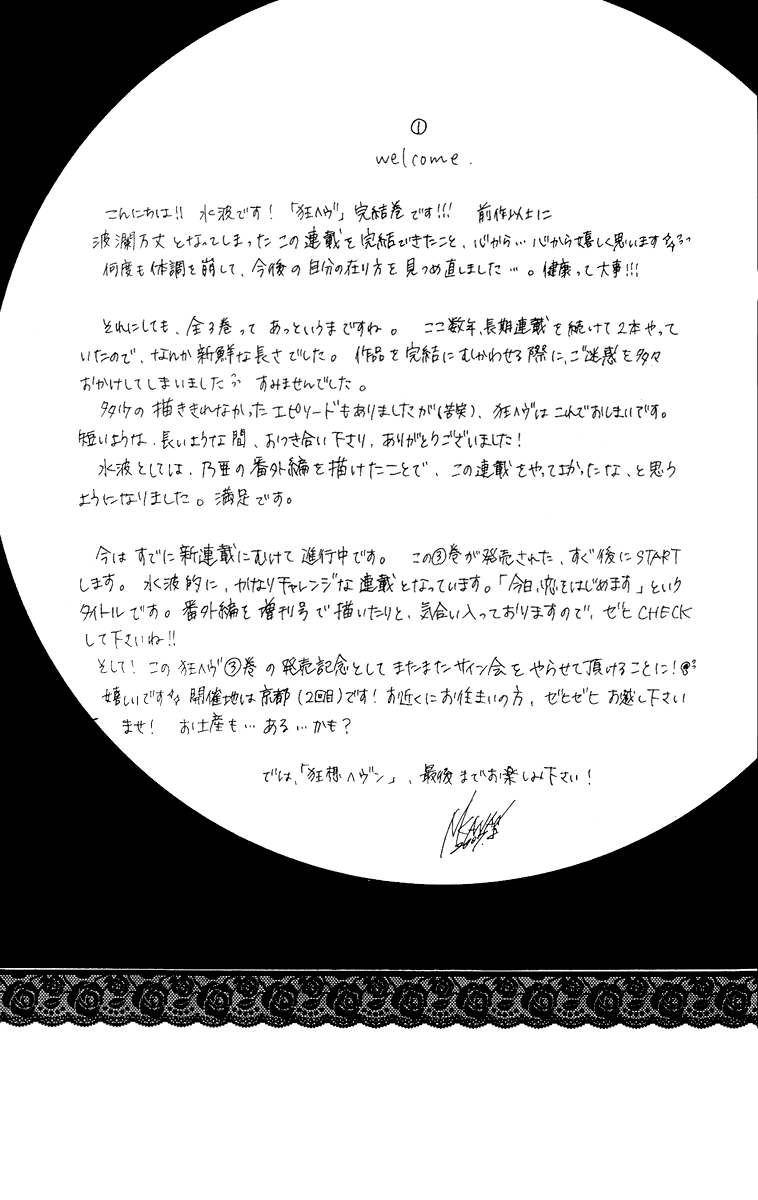 ①
welcome.
こんにちは!! 水波です!「狂ヘヴ」完結巻です!!! 前作以上に
波瀾万丈となってしまったこの連載を完結できたこと、心から…心から嬉しく思います
何度も体調を崩して、今後の自分の在り方を見つめ直しました…。健康って大事!!!
それにしても、全3巻ってあっというまですね。 ここ数年、長期連載を続けて2本やって
いたので、なんか新鮮な長さでした。 作品を完結にむかわせる際に、ご迷惑を多々
おかけしてしまいました すみませんでした。
多々の描ききれなかったエピソードもありましたが(苦笑)、狂ヘヴはこれでおしまいです。
短いような、長いような間、おつき合い下さり、ありがとうございました!
水波としては、乃亜の番外編を描けたことで、この連載をやってよかったな、と思う
ようになりました。満足です。
今はすでに新連載にむけて進行中です。 この③巻が発売された、すぐ後にSTART
します。 水波的に、かなりチャレンジな連載となっています。「今日、恋をはじめます」という
タイトルです。番外編を増刊号で描いたりと、気合い入っておりますので、ぜひCHECK
して下さいね!!
そして!この狂ヘヴ③巻の発売記念としてまたまたサイン会をやらせて頂けることに!
嬉しいです 開催地は京都(2回目)です!お近くにお住まいの方、ぜひぜひお越し下さい
ませ! お土産も…ある…かも?
では、「狂想ヘヴン」、最後までお楽しみ下さい!